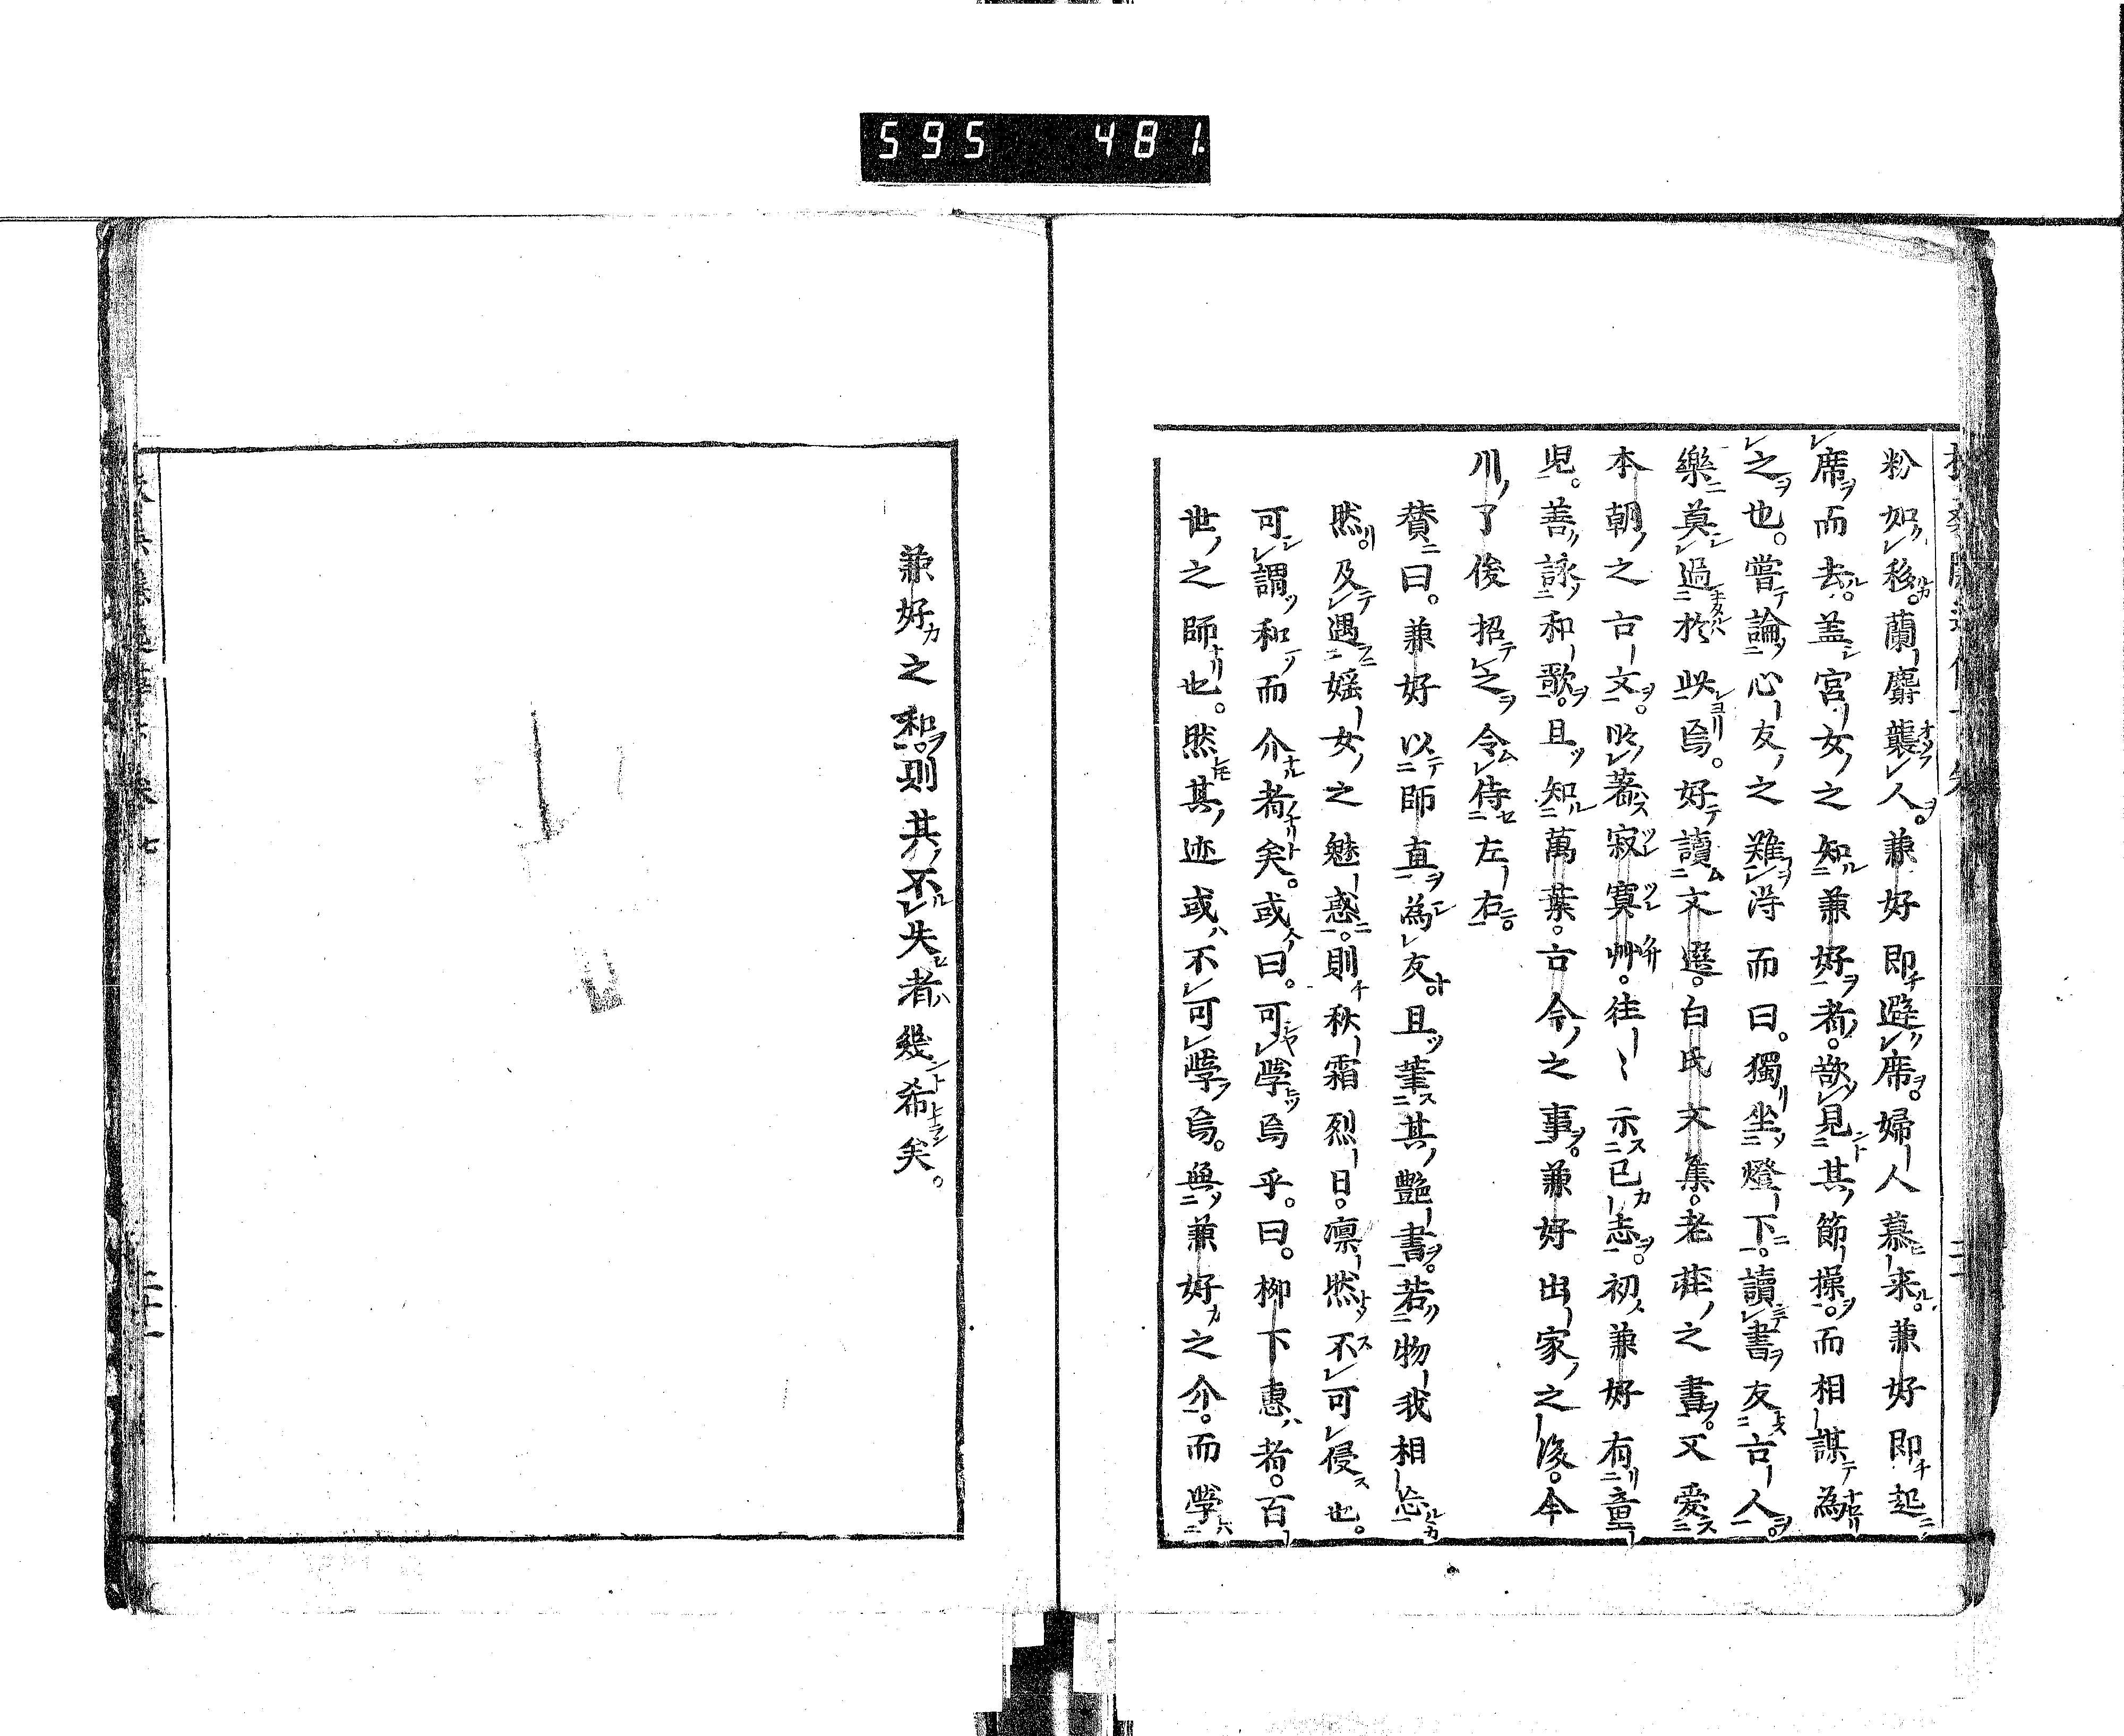 595 481
粉如移。蘭麝襲人。兼好即避席。婦人慕来。兼好即起
席而去。盖宮女之知兼好者。欲見其節操。而相謀為
之也。嘗論心友之難得而曰。獨坐燈下。讀書友古人
樂莫過於此焉。好讀文選。白氏文集。老莊之書。又愛
本朝之古文。以蕃寂寞艸。往〻示已志。初兼好有童
児。善詠和歌。且知萬葉。古今之事。兼好出家之後。今
川了俊招之令侍左右。
賛曰。兼好以師直為友。且筆其艶書。若物我相忘
然。及遇婬女之魅惑。則秋霜烈日。凛然不可侵也。
可謂和而介者矣。或曰。可學焉乎。曰。柳下惠者。百
世之師也。然其迹或不可學焉。與兼好之介。而學
兼好之和。則其不失者幾希矣。
卷七
二十一